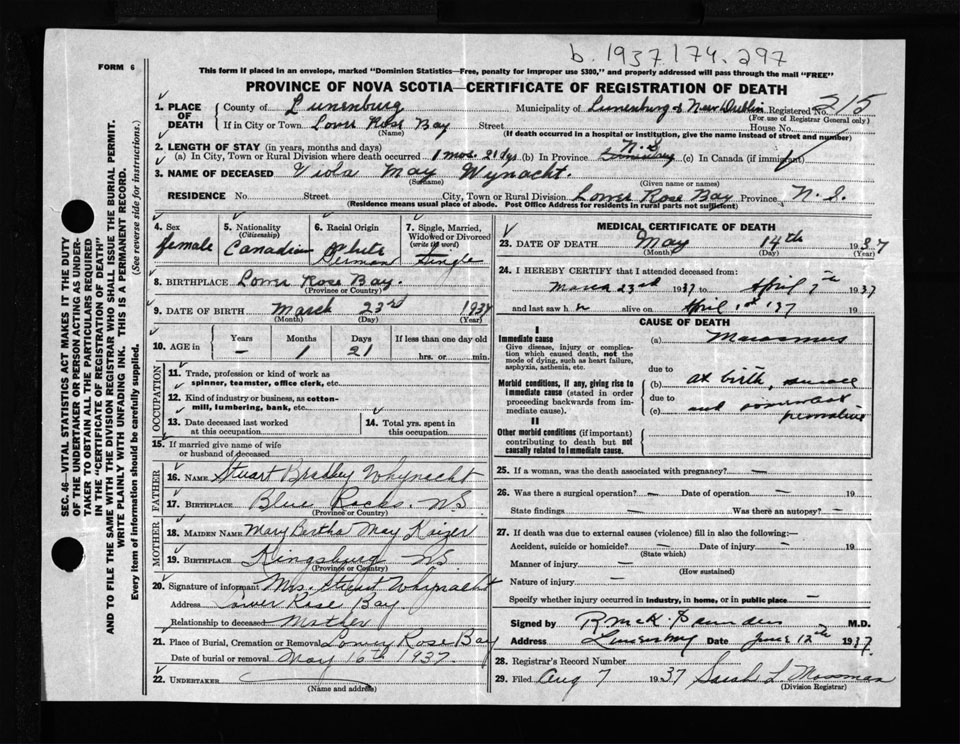 b. 1937.174.297
FORM 6
This form if placed in an envelope, marked "Dominion Statistics—Free, penalty for improper use $300," and properly addressed will pass through the mail "FREE"
PROVINCE OF NOVA SCOTIA—CERTIFICATE OF REGISTRATION OF DEATH
1. PLACE OF DEATH County of Lunenburg Municipality of Lunenburg & New Dublin Registered No. 215
(For use of Registrar General only)
If in City or Town Lower Rose Bay Street House No.
(Name) (If death occurred in a hospital or institution, give the name instead of street and number)
2. LENGTH OF STAY (in years, months and days)
(a) In City, Town or Rural Division where death occurred 1 mos. 21 dys (b) In Province N.S (c) In Canada (if immigrant)
3. NAME OF DECEASED Viola May Wynacht.
(Surname) (Given name or names)
RESIDENCE No. Street City, Town or Rural Division Lower Rose Bay Province N.S.
(Residence means usual place of abode. Post Office Address for residents in rural parts not sufficient)
4. Sex female
5. Nationality (Citizenship) Canadian
6. Racial Origin White German
7. Single, Married, Widowed or Divorced (write the word) Single
8. BIRTHPLACE Lower Rose Bay.
(Province or Country)
9. DATE OF BIRTH March 23rd 1937
(Month) (Day) (Year)
10. AGE in Years Months Days If less than one day old
— 1 21 hrs. or min.
OCCUPATION
11. Trade, profession or kind of work as spinner, teamster, office clerk, etc.
12. Kind of industry or business, as cotton-mill, lumbering, bank, etc.
13. Date deceased last worked at this occupation
14. Total yrs. spent in this occupation
15. If married give name of wife or husband of deceased
FATHER
16. NAME Stuart Bradley Whynacht
17. BIRTHPLACE Blue Rocks. N.S.
(Province or Country)
MOTHER
18. MAIDEN NAME Mary Bertha May Kaizer
19. BIRTHPLACE Kingsburg N.S
(Province or Country)
20. Signature of informant Mrs. Stuart Whynacht
Address Lower Rose Bay.
Relationship to deceased Mother
21. Place of Burial, Cremation or Removal Lower Rose Bay
Date of burial or removal May 16th 1937.
22. UNDERTAKER
(Name and address)
MEDICAL CERTIFICATE OF DEATH
23. DATE OF DEATH May 14th 1937
(Month) (Day) (Year)
24. I HEREBY CERTIFY that I attended deceased from:
March 23rd 1937 to April 7th 1937
and last saw h er alive on April 1st '37 19
CAUSE OF DEATH
I
Immediate cause (a) Marasmus
Give disease, injury or complication which caused death, not the mode of dying, such as heart failure, asphyxia, asthenia, etc.
due to
Morbid conditions, if any, giving rise to immediate cause (stated in order proceeding backwards from immediate cause).
(b) at birth,
due to
(c) and somewhat premature
II
Other morbid conditions (if important) contributing to death but not causally related to immediate cause.
25. If a woman, was the death associated with pregnancy? —
26. Was there a surgical operation? — Date of operation — 19
State findings — Was there an autopsy? —
27. If death was due to external causes (violence) fill in also the following:—
Accident, suicide or homicide? — Date of injury — 19
(State which)
Manner of injury —
(How sustained)
Nature of injury —
Specify whether injury occurred in industry, in home, or in public place —
Signed by M.D.
Address Lunenburg Date June 12th 1937.
28. Registrar's Record Number
29. Filed Aug 7 1937 Sarah L Mossman
(Division Registrar)
SEC. 46—VITAL STATISTICS ACT MAKES IT THE DUTY
OF THE UNDERTAKER OR PERSON ACTING AS UNDER-
TAKER TO OBTAIN ALL THE PARTICULARS REQUIRED
IN THE "CERTIFICATE OF REGISTRATION OF DEATH"
AND TO FILE THE SAME WITH THE DIVISION REGISTRAR WHO SHALL ISSUE THE BURIAL PERMIT.
WRITE PLAINLY WITH UNFADING INK. THIS IS A PERMANENT RECORD.
Every item of information should be carefully supplied. (See reverse side for instructions.)